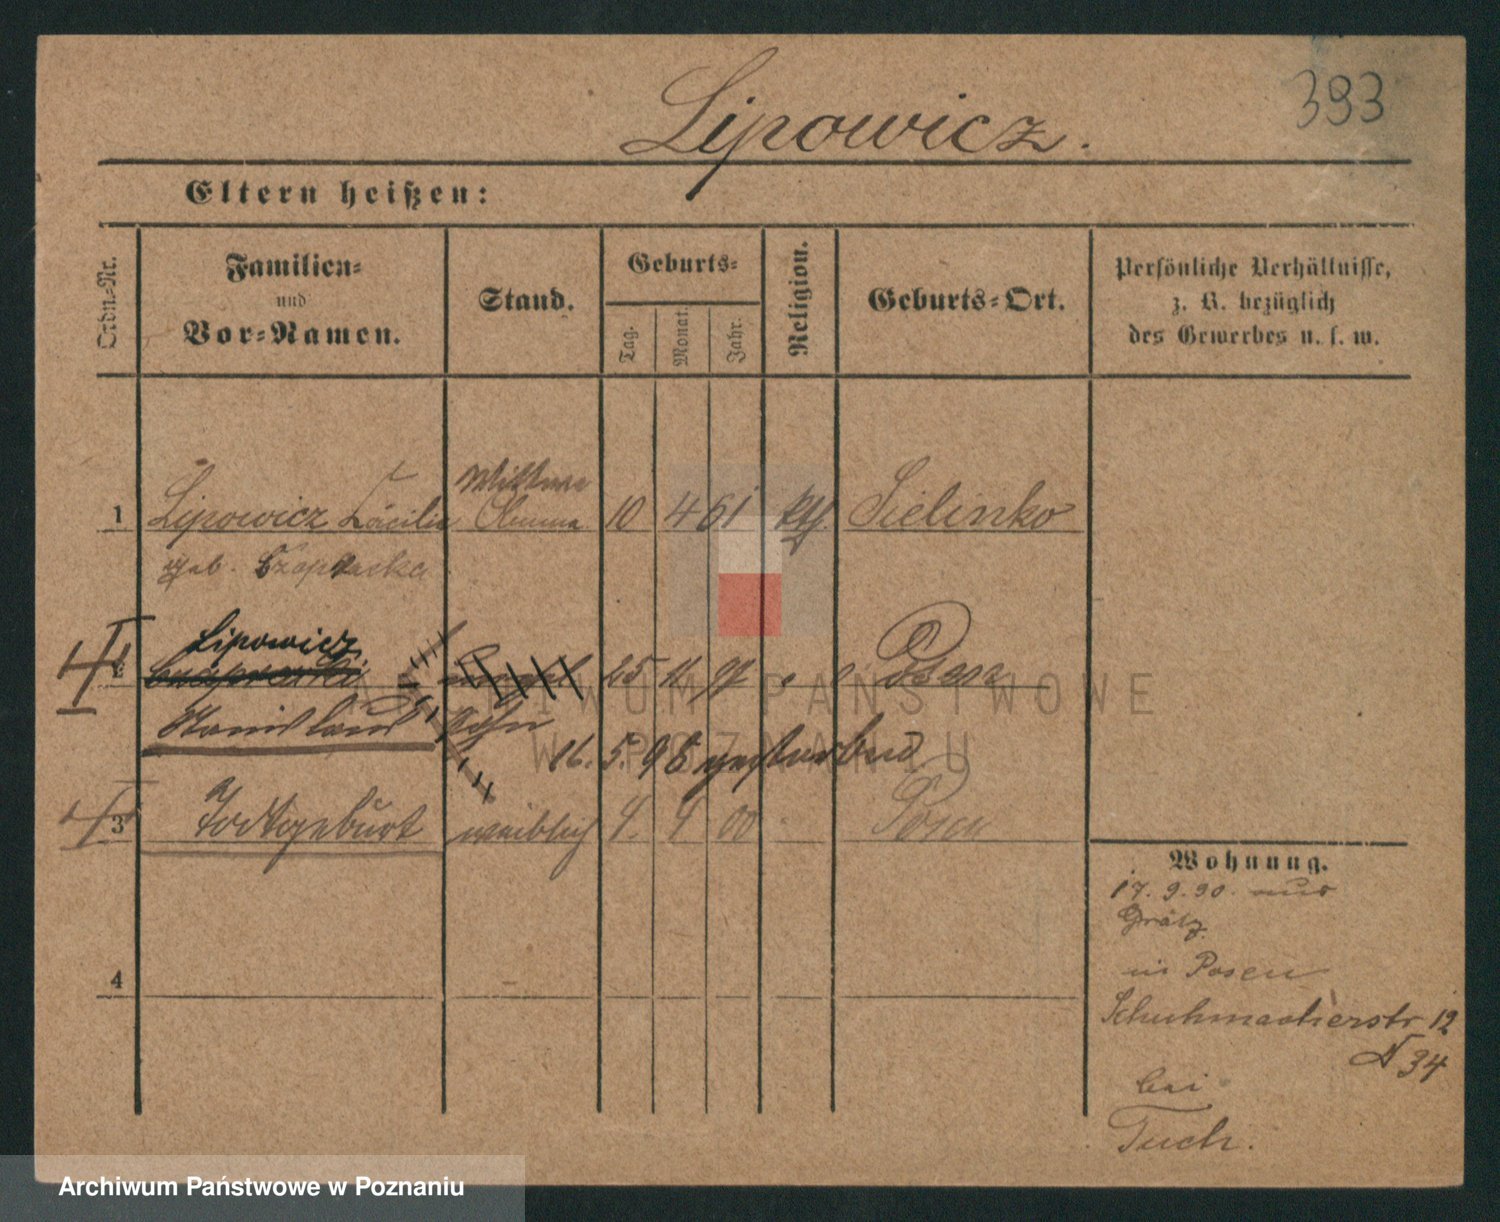 393
Lipowicz.
Eltern heißen:
Ordn.-Nr.
Familien-
und
Vor-Namen.
Stand.
Geburts-
Tag.
Monat.
Jahr.
Religion.
Geburts-Ort.
Persönliche Verhältnisse,
z. B. bezüglich
des Gewerbes u. s. w.
Wittwe
1 Lipowicz Cäcilie 10 4 61 kth Sielinko
geb.
Lipowicz
2 25 11 97 Posen
Stanislaus Sohn
16. 5. 98 gestorben
3 Todtgeburt weiblich 9. 9 00 Posen
4
Wohnung.
17. 9. 90. aus
Grätz
in Posen
Schuhmacherstr 12
N 34
bei
Tuch.
ARCHIWUM PAŃSTWOWE
W POZNANIU
Archiwum Państwowe w Poznaniu